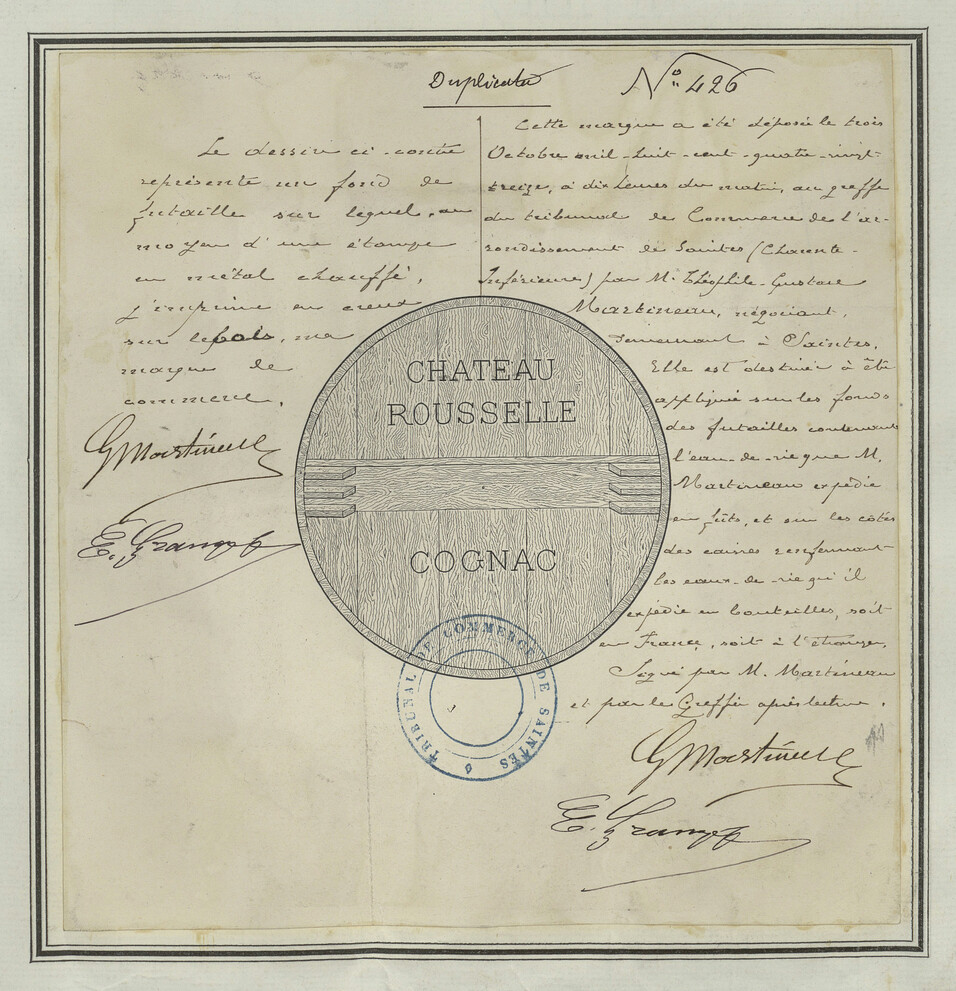 Duplicata
N° 426
Le dessin ci-contre
représente un fond de
futaille sur lequel, au
moyen d'une étampe
en métal chauffé,
j'imprime en creux
sur le bois, ma
marque de
commerce.
GMartineau
E. Grange
Cette marque a été déposée le trois
Octobre mil-huit-cent-quatre-vingt-
treize, à dix heures du matin, au greffe
du tribunal de Commerce de l'ar-
rondissement de Saintes (Charente-
Inférieure) par M. Théophile-Gustave
Martineau, négociant,
demeurant à Saintes.
Elle est destinée à être
appliquée sur les fonds
des futailles contenant
l'eau-de-vie que M.
Martineau expédie
en fûts, et sur les côtés
des caisses renfermant
les eaux-de-vie qu'il
expédie en bouteilles, soit
en France, soit à l'étranger.
Signé par M. Martineau
et par le Greffier après lecture.
GMartineau
E. Grange
CHATEAU
ROUSSELLE
COGNAC
TRIBUNAL DE COMMERCE DE SAINTES